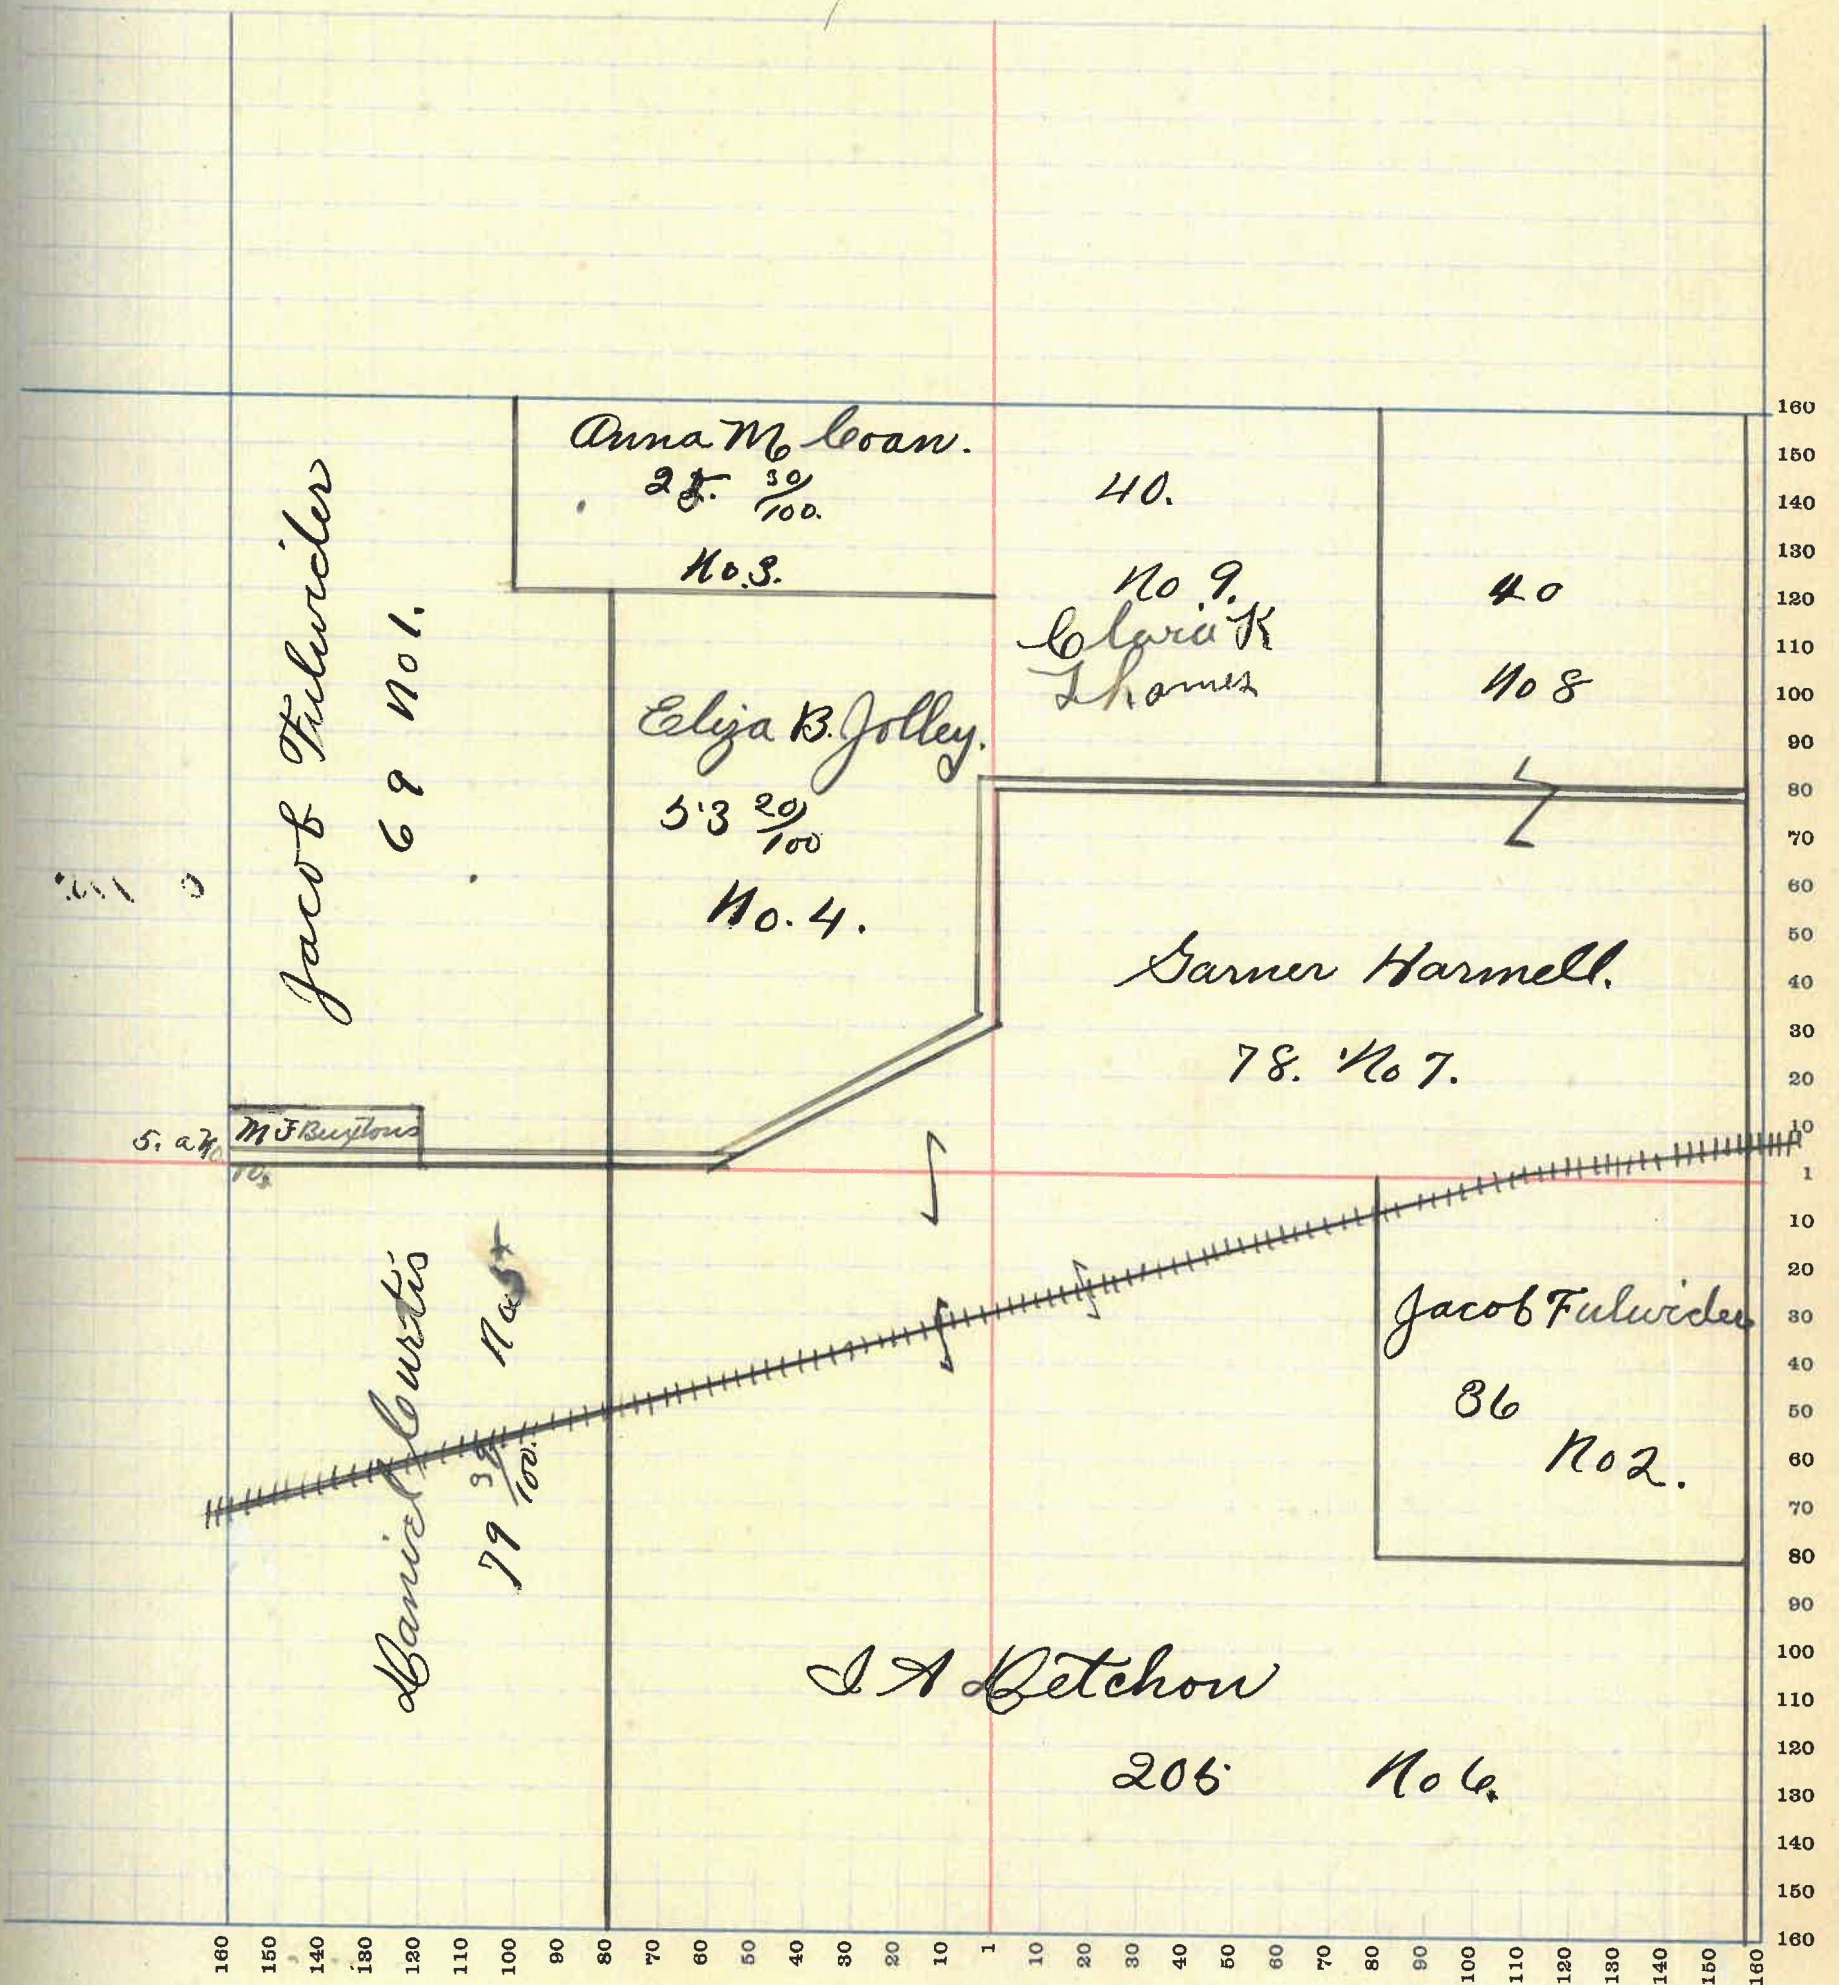 Anna M Coan.
25. 30/100.
No. 3.
40.
No 9.
Clara K
Thomes
40
No 8
Jacob Fulwider
69 No 1.
Eliza B. Jolley.
53 20/100
No. 4.
Garner Harmell.
78. No 7.
5. a
M J Buxtons
10.
Daniel Curtis
79 39/100. No 5
Jacob Fulwider
36
No 2.
I A Detchon
205 No 6.
160
150
140
130
120
110
100
90
80
70
60
50
40
30
20
10
1
10
20
30
40
50
60
70
80
90
100
110
120
130
140
150
160
160 150 140 130 120 110 100 90 80 70 60 50 40 30 20 10 1 10 20 30 40 50 60 70 80 90 100 110 120 130 140 150 160